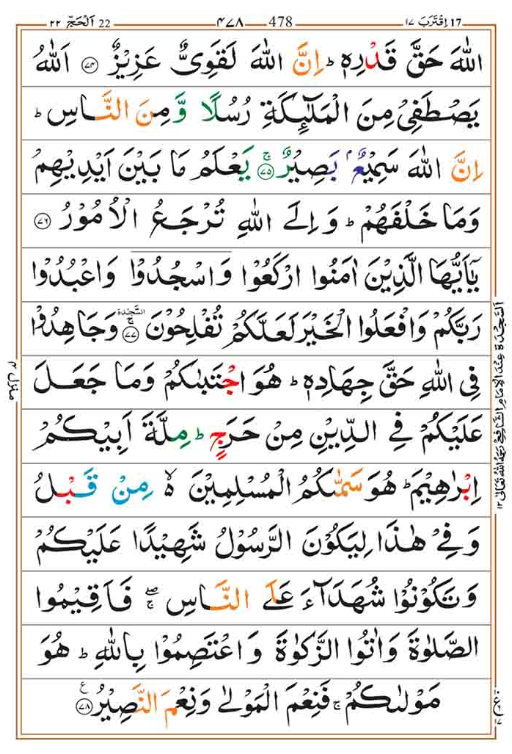 ٢٢ اَلْحَجّ 22 ٤٧٨ 478 17 اِقْتَرَبَ ١٧
اللّٰهَ حَقَّ قَدْرِهٖ ؕ اِنَّ اللّٰهَ لَقَوِیٌّ عَزِیْزٌ ﴿۷۴﴾ اَللّٰهُ
یَصْطَفِیْ مِنَ الْمَلٰٓئِكَةِ رُسُلًا وَّ مِنَ النَّاسِ ؕ
اِنَّ اللّٰهَ سَمِیْعٌۢ بَصِیْرٌ ﴿ۚ۷۵﴾ یَعْلَمُ مَا بَیْنَ اَیْدِیْهِمْ
وَمَا خَلْفَهُمْ ؕ وَ اِلَی اللّٰهِ تُرْجَعُ الْاُمُوْرُ ﴿۷۶﴾
یٰۤاَیُّهَا الَّذِیْنَ اٰمَنُوا ارْكَعُوْا وَاسْجُدُوْا وَاعْبُدُوْا
رَبَّكُمْ وَافْعَلُوا الْخَیْرَ لَعَلَّكُمْ تُفْلِحُوْنَ ﴿ۚ۷۷﴾ السَّجْدَة وَجَاهِدُوْا
فِی اللّٰهِ حَقَّ جِهَادِهٖ ؕ هُوَ اجْتَبٰىكُمْ وَمَا جَعَلَ
عَلَیْكُمْ فِی الدِّیْنِ مِنْ حَرَجٍ ؕ مِلَّةَ اَبِیْكُمْ
اِبْرٰهِیْمَ ؕ هُوَ سَمّٰىكُمُ الْمُسْلِمِیْنَ ۙ۬ مِنْ قَبْلُ
وَ فِیْ هٰذَا لِیَكُوْنَ الرَّسُوْلُ شَهِیْدًا عَلَیْكُمْ
وَ تَكُوْنُوْا شُهَدَآءَ عَلَی النَّاسِ ۖۚ فَاَقِیْمُوا
الصَّلٰوةَ وَاٰتُوا الزَّكٰوةَ وَ اعْتَصِمُوْا بِاللّٰهِ ؕ هُوَ
مَوْلٰىكُمْ ۚ فَنِعْمَ الْمَوْلٰی وَنِعْمَ النَّصِیْرُ ﴿۷۸﴾ ع
اَلسَّجْدَةُ عِنْدَ الْاِمَامِ الشَّافِعِیِّ رَحِمَهُ اللّٰهُ تَعَالٰی ۱۲
منزل ۴